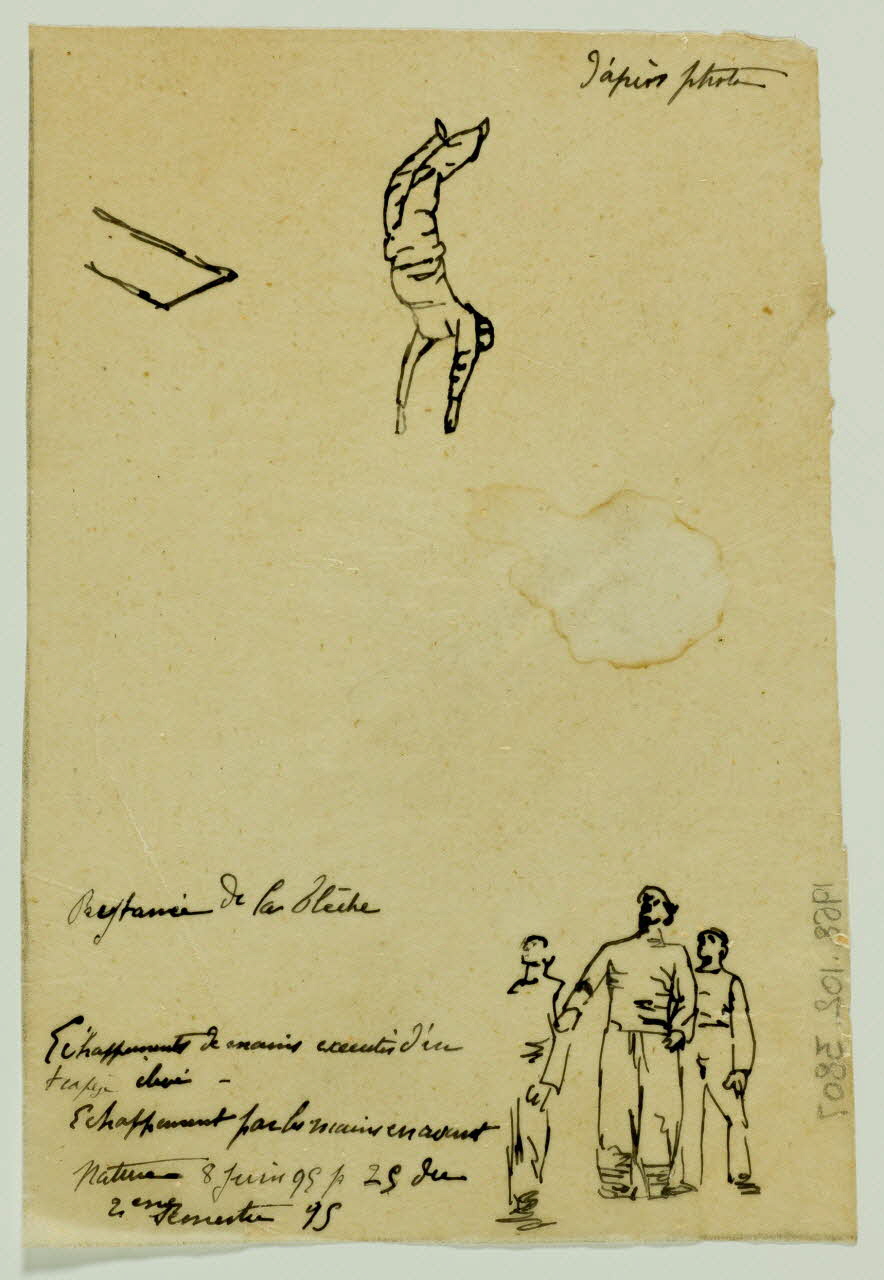 d'après photo
Prytanée de la Flèche
Echappements de mains executés d'un
trapeze élevé -
Echappement par les mains en avant
Nature 8 Juin 95 p 25 du
2eme semestre 95